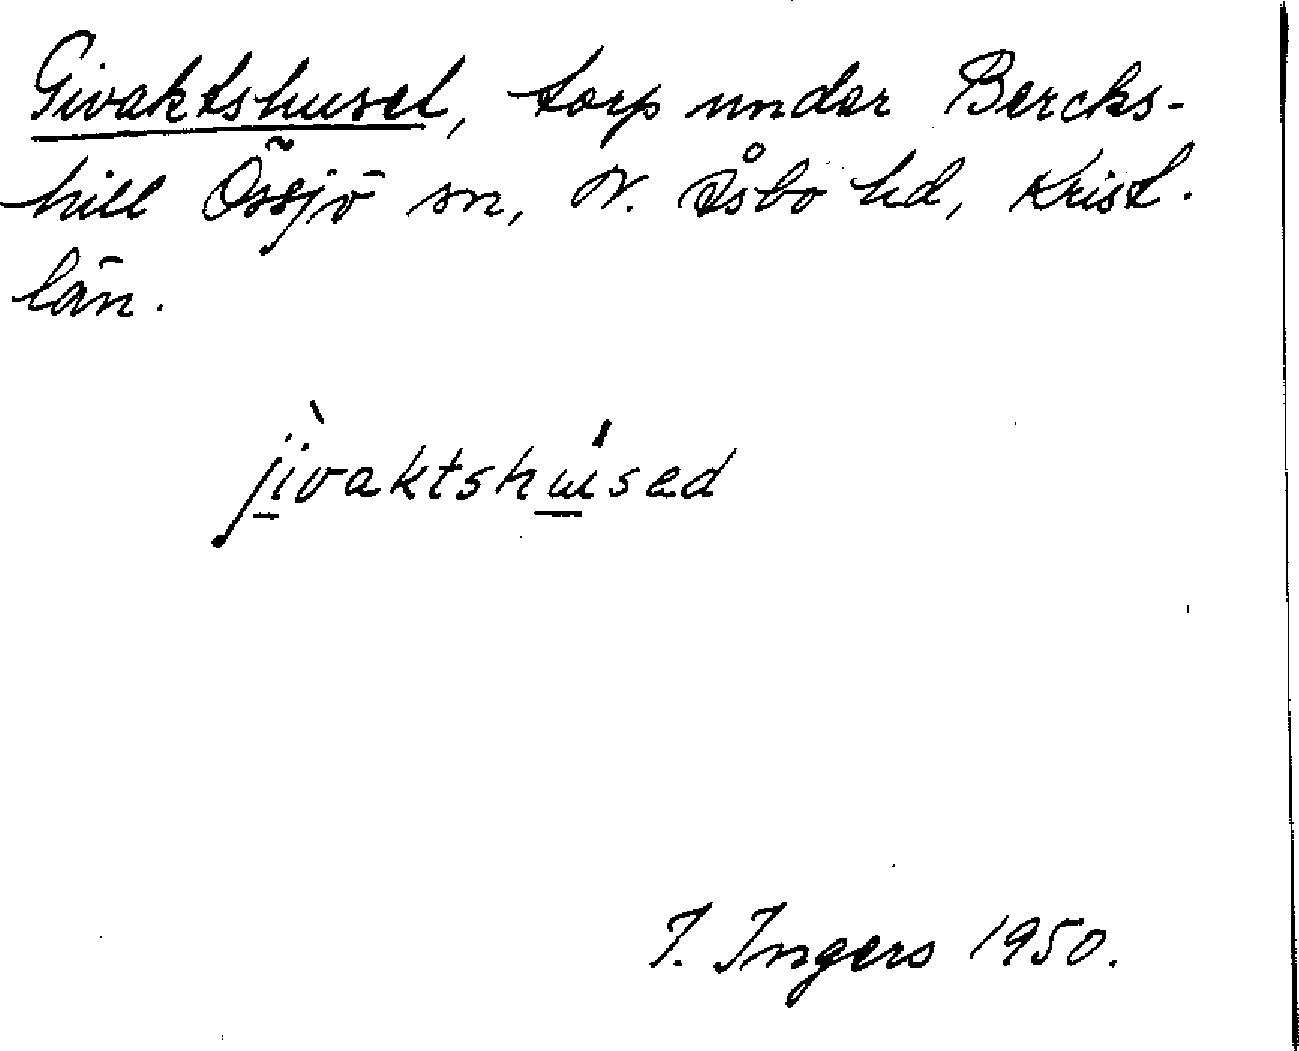 Givaktshuset, torp under Bercks-
hill Össjö sn, N. Åsbo hd, Krist.
län.
jìvaktshúsed
I. Ingers 1950.